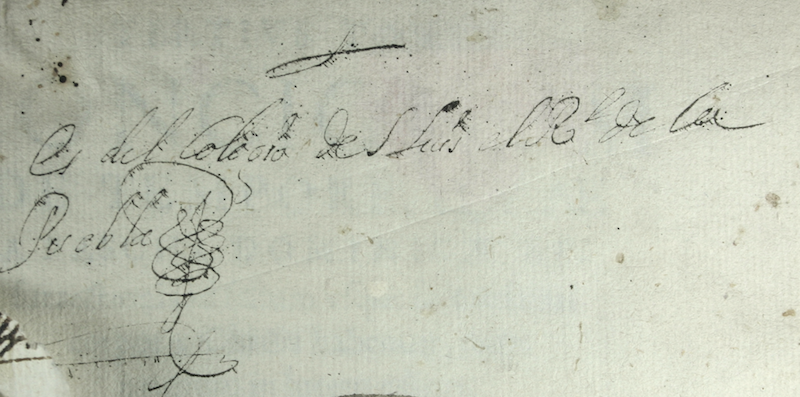 Es del Colegio de S Luis el Rl de la
Puebla